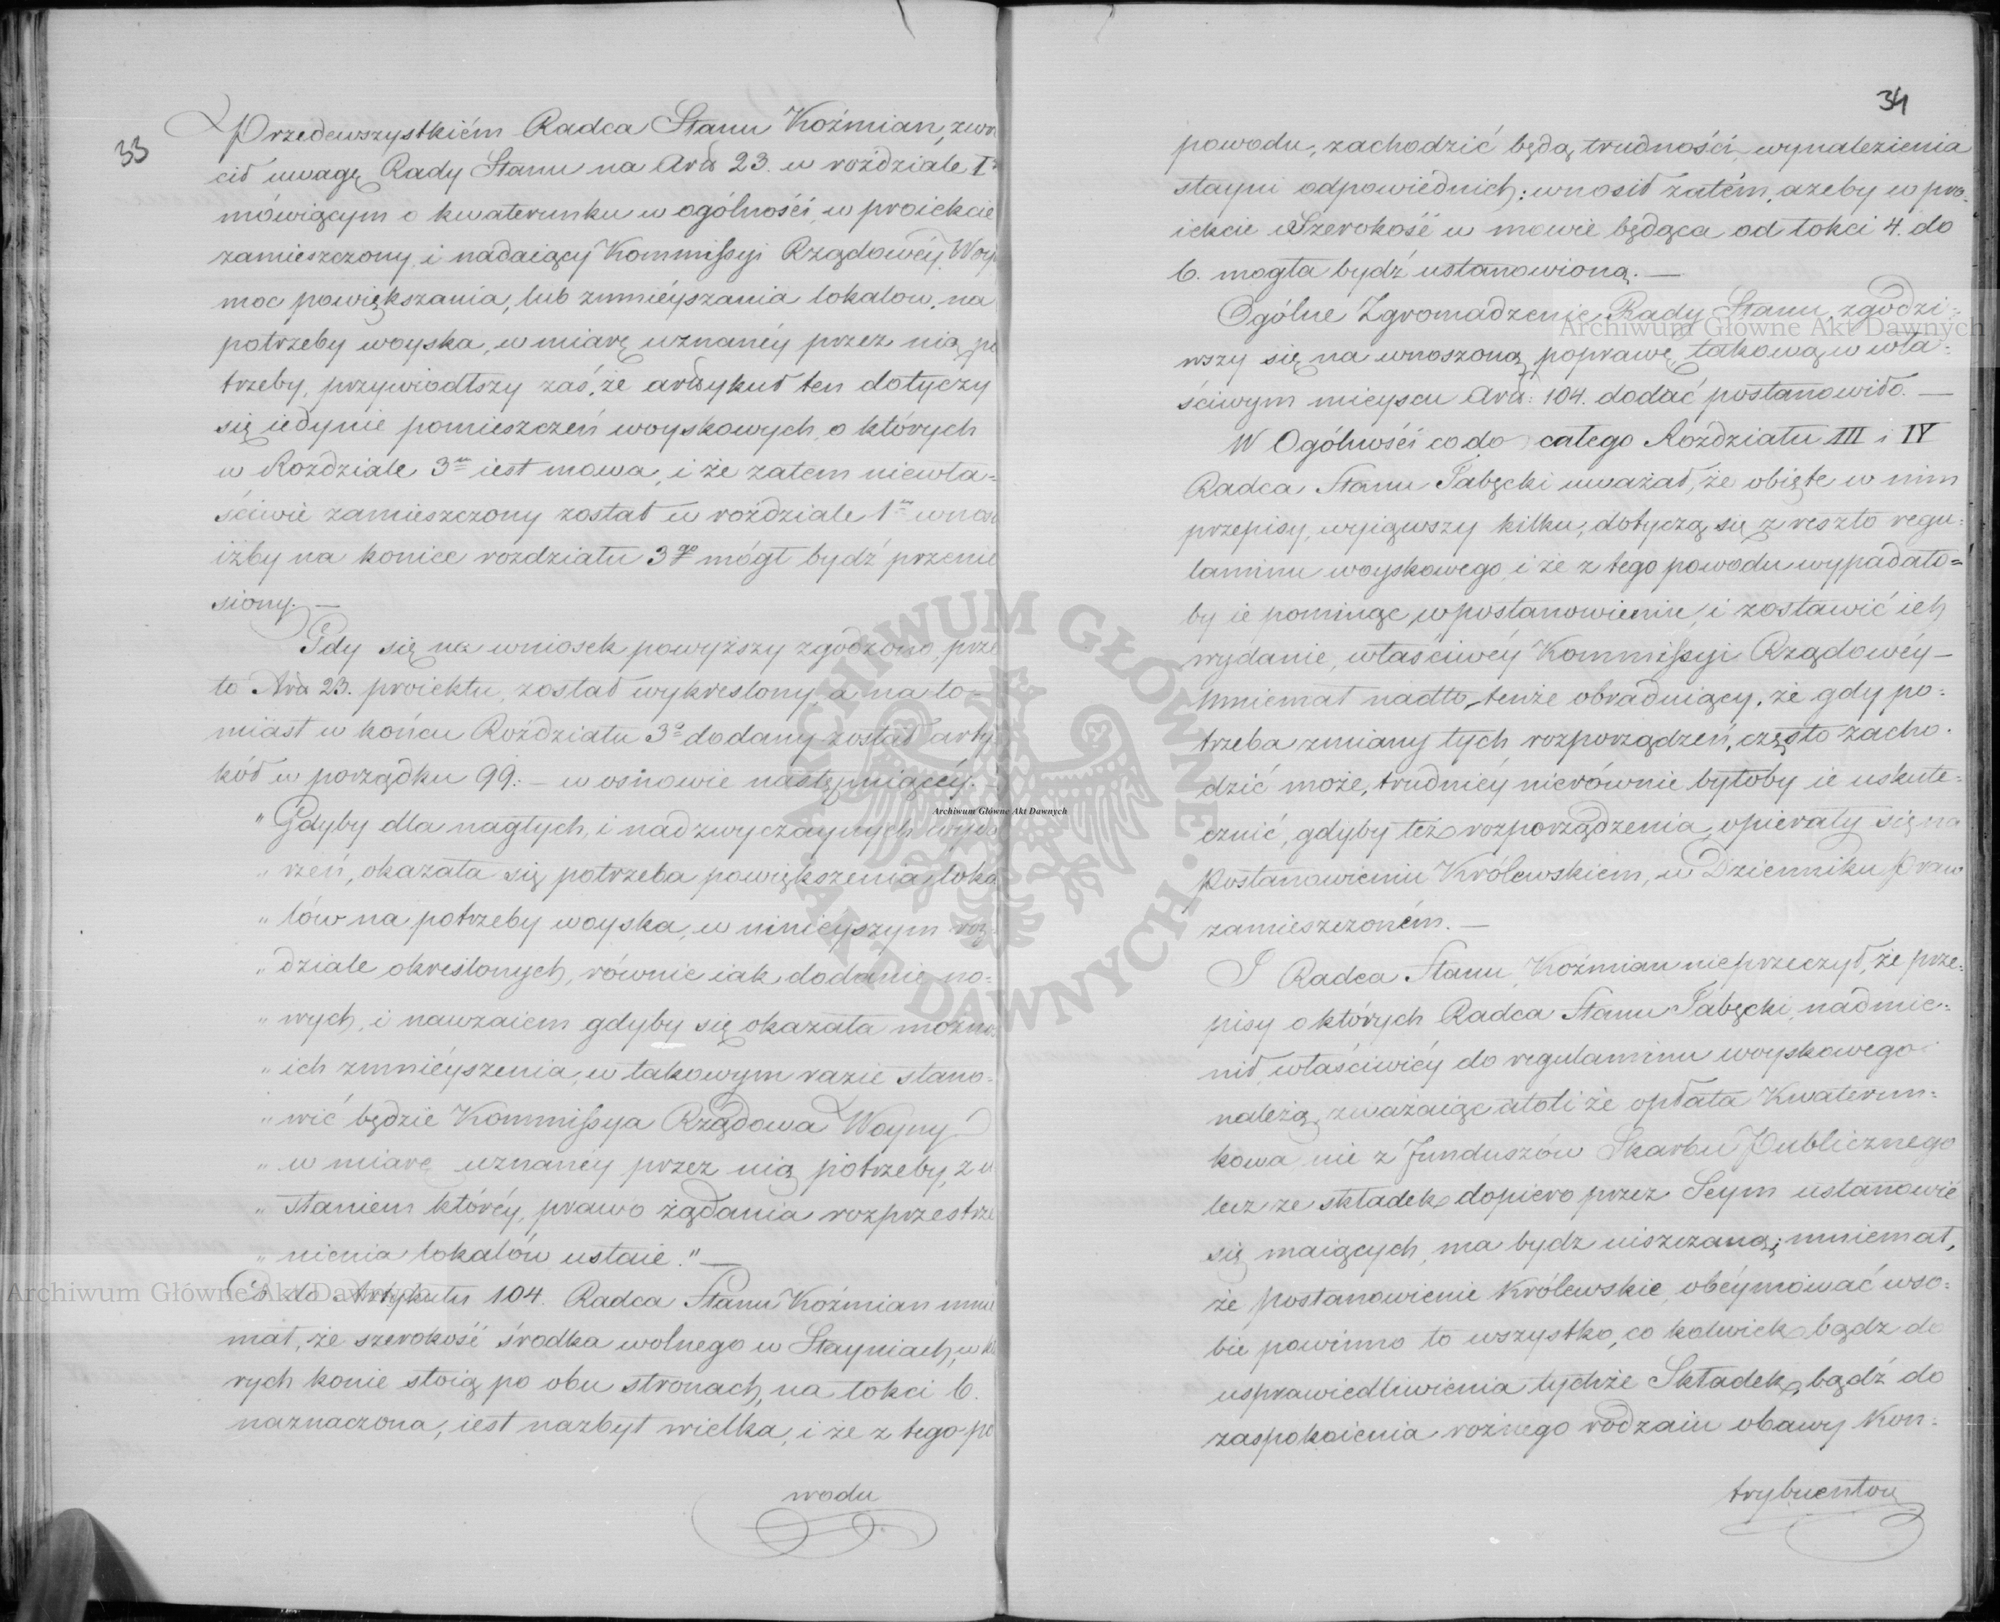 33
Przedewszystkiém Radca Stanu Koźmian, zwró
cił uwagę Rady Stanu na Artł 23. w roździale I
mówiącym o kwaterunku w ogólności, w proiekcie
zamieszczony, i nadaiący Kommissyi Rządowéy Woy
moc powiększania, lub zmniéyszania lokalów, na
potrzeby woyska, w miarę uznanéy przez nią po
trzeby, przywiodłszy zaś, że artykuł ten dotyczy
się iedynie pomieszczeń woyskowych, o których
w Rozdziale 3m iest mowa, i że zatem niewła-
ściwie zamieszczony został w roździale 1m wnosi
iżby na końce rozdziału 3go mógł bydź przenie
siony. —
Gdy się na wniosek powyższy zgodzono, prze
to Art 23. proiektu, został wykreślony, a na to-
miast w końcu Roździału 3o dodany został arty
kół w porządku 99: — w osnowie następuiącéy. —
" Gdyby dla nagłych, i nadzwyczaynych wyda
" rzeń, okazała się potrzeba powiększenia loka
" lów na potrzeby woyska, w ninieyszym roz
" dziale określonych, równie iak dodanie no-
" wych, i nawzaiem gdyby się okazała możno
" ich zmniéyszenia, w takowym razie stano-
" wić będzie Kommissya Rządowa Woyny
" w miarę uznanéy przez nią potrzeby, z u
" staniem któréy, prawo żądania rozprzestrze
" nienia lokalów ustaie." —
Co do Artykułu 104. Radca Stanu Koźmian mnie
mał, że szerokość środka wolnego w Stayniach, w któ
rych konie stoią po obu stronach, na łokci 6.
naznaczona, iest nazbyt wielka, i że z tego po
wodu
34
powodu, zachodzić będą trudności, wynalezienia
stayni odpowiednich: wnosił zatém, ażeby w pro-
iekcie Szerokość w mowie będąca od łokci 4. do
6. mogła bydź ustanowioną. —
Ogólne Zgromadzenie Rady Stanu, zgodzi-
wszy się na wnoszoną poprawę, takową w wła-
ściwym mieyscu Artł: 104. dodać postanowiło. —
W Ogólności co do całego Roździału III i IV
Radca Stanu Tabęcki uważał, że obięte w nim
przepisy, wyiąwszy kilku, dotyczą się z resztą regu-
laminu woyskowego, i że z tego powodu wypadało-
by ie pominąć w postanowieniu, i zostawić ich
wydanie, właściwéy Kommissyi Rządowéy —
Mniemał nadto tenże obraduiący, że gdy po-
trzeba zmiany tych rozporządzeń, często zacho-
dzić może, trudniéy nierównie byłoby ie uskute-
cznić, gdyby też rozporządzenia, opierały się na
Postanowieniu Królewskiem, w Dzienniku Praw
zamieszczoném. —
I Radca Stanu, Koźmian nieprzeczył, że prze-
pisy o których Radca Stanu Tabęcki, nadmie-
nił, właściwiéy do regulaminu woyskowego
należą, zważaiąc atoli że opłata Kwaterun-
kowa, nie z funduszów Skarbu Publicznego
lecz ze składek dopiero przez Seym ustanowić
się maiących, ma bydź uiszczaną; mniemał,
że postanowienie Królewskie, obéymować w so-
bie powinno to wszystko, co kolwiek bądź do
usprawiedliwienia tychże Składek, bądź do
zaspokoienia rożnego rodzaiu obawy Kon-
trybuentów
Archiwum Główne Akt Dawnych
Archiwum Główne Akt Dawnych
Archiwum Główne Akt Dawnych
ARCHIWUM GŁÓWNE · AKT DAWNYCH ·